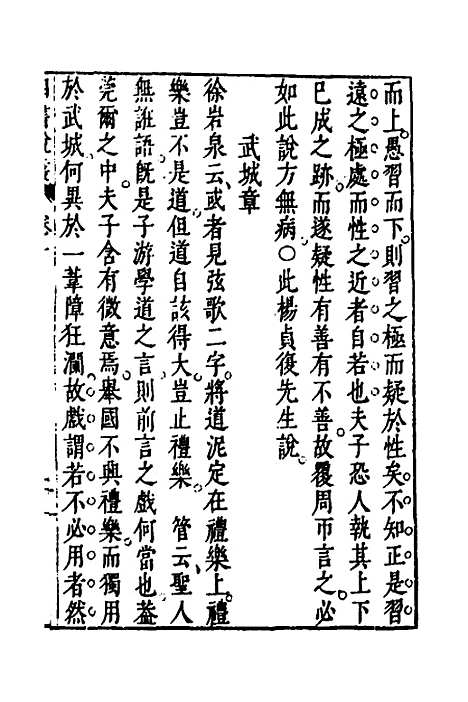 而上愚習而下則習之極而疑於性矣不知正是習
遠之極處而性之近者自若也夫子恐人執其上下
已成之跡而遂疑性有善有不善故覆周帀言之必
如此說方無病○此楊貞復先生說
武城章
徐岩泉云或者見弦歌二字將道泥定在禮樂上禮
樂豈不是道但道自該得大豈止禮樂 管云聖人
無誑語旣是子游學道之言則前言之戲何當也葢
莞爾之中夫子含有微意焉舉國不興禮樂而獨用
於武城何異於一葦障狂瀾故戲謂若不必用者然